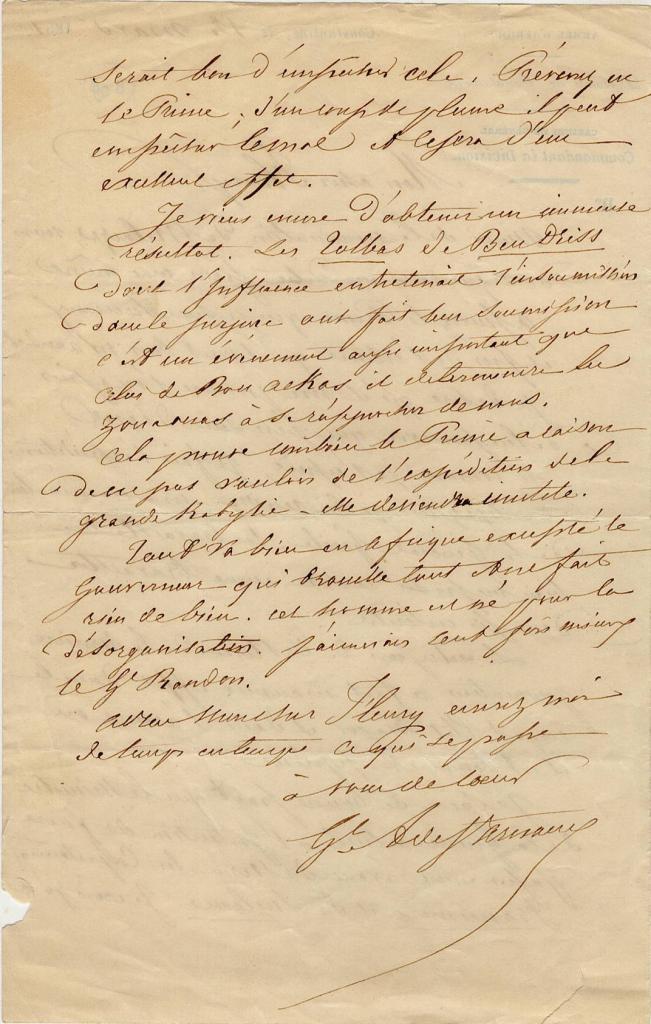 serait bon d'empêcher cela. Prévenez en
le Prince, d'un coup de plume il peut
empêcher le mal et ce sera d'un
excellent effet.
Je viens encore d'obtenir un immense
résultat. Les Tolbas de Ben Driss
dont l'Influence entretenait l'insoumission
dans le ont fait leur soumission
c'est un événement aussi important que
celui de Bou Akkas il déterminera les
Zouaouas à se rapprocher de nous.
Cela prouve combien le Prince a raison
de ne pas vouloir de l'expédition de la
grande Kabylie - elle deviendra inutile.
Tout va bien en Afrique excepté le
Gouverneur qui brouille tout et ne fait
rien de bien. cet homme est né pour la
désorganisation. j'aimerais cent fois mieux
le Gl Randon.
adieu mon cher Fleury écrivez moi
de temps en temps ce qui se passe
à vous de coeur
Gl A de St Arnaud